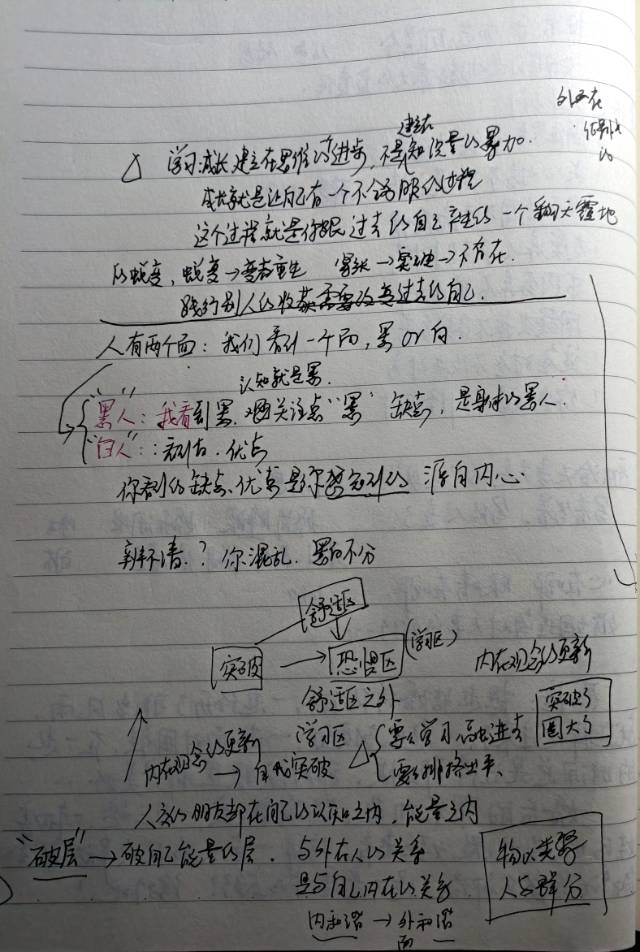 外面在
建立在
△ 学习成长建立在思维的进步,不是知识量的累加.
成长就是让自己有一个不舒服的过程
这个过程就是你跟过去的自己产生的一个翻天覆地
的蜕变,蜕变→ 重生 →突破→不存在.
践行别人的收获需要改变过去的自己.
人有两个面:我们看到一个面,黑or白.
认知就是黑.
"黑人":我看到黑,关注点"黑" 缺点,是身体的黑人.
"白人":看到白.优点
你看到的缺点、优点是你想看到的 源自内心
辨不清.?你混乱.黑白不分
舒适区
突破 → 恐惧区 (学习区)
舒适区之外
内在观念的更新
突破了
圈大了
学习区
内在观念的更新
→ 自我突破
△ 要么学习融进去
要么排挤出来、
人交的朋友都在自己的认知之内,能量之内
"破层" → 破自己能量的层.
与外在人的关系
是与自己内在的关系
内和谐 → 外和谐
物以类聚
人与群分